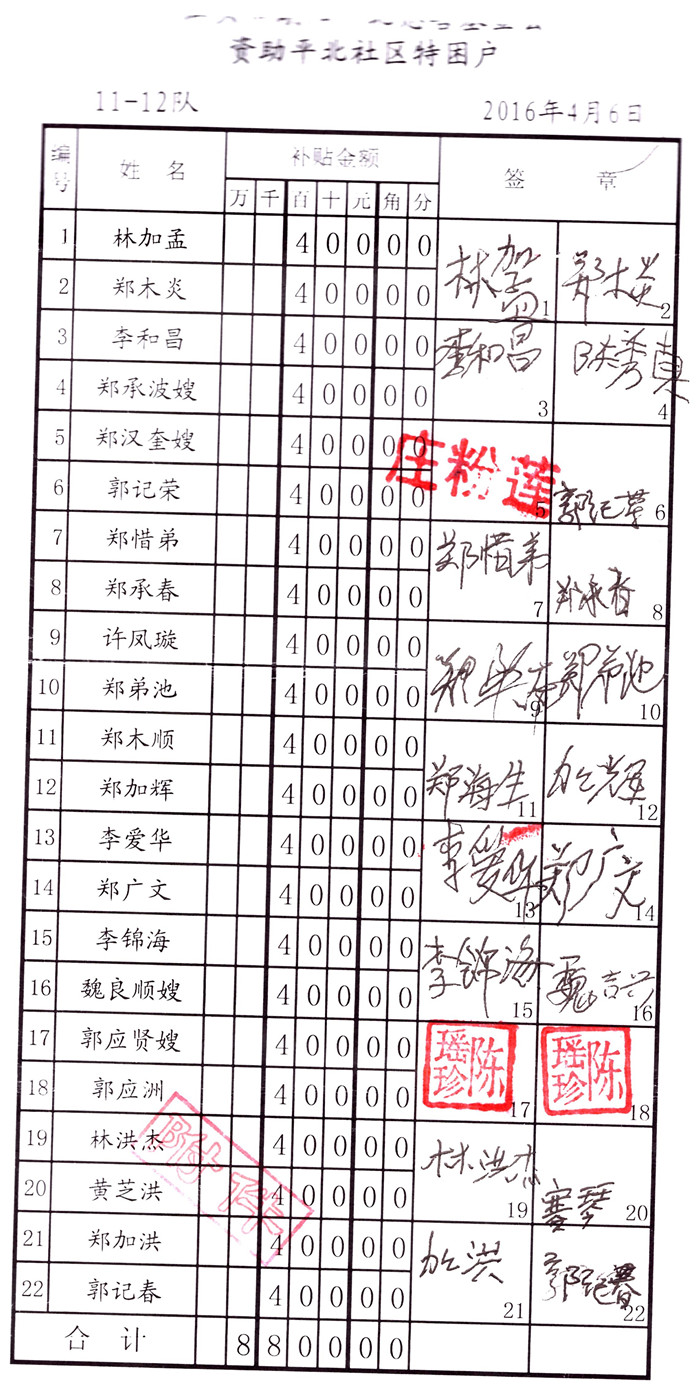 资助平北社区特困户
11-12队 2016年4月6日
编号 姓 名 补贴金额 签 章
万 千 百 十 元 角 分
1 林加孟 4 0 0 0 0 林加孟 1 郑木炎 2
2 郑木炎 4 0 0 0 0
3 李和昌 4 0 0 0 0 李和昌 3 陈秀真 4
4 郑承波嫂 4 0 0 0 0
5 郑汉奎嫂 4 0 0 0 0 庄粉莲 5 郭记荣 6
6 郭记荣 4 0 0 0 0
7 郑惜弟 4 0 0 0 0 郑惜弟 7 郑承春 8
8 郑承春 4 0 0 0 0
9 许凤璇 4 0 0 0 0 9 郑弟池 10
10 郑弟池 4 0 0 0 0
11 郑木顺 4 0 0 0 0 郑海生 11 加辉 12
12 郑加辉 4 0 0 0 0
13 李爱华 4 0 0 0 0 李爱华 13 郑广文 14
14 郑广文 4 0 0 0 0
15 李锦海 4 0 0 0 0 李锦海 15 魏吉兴 16
16 魏良顺嫂 4 0 0 0 0
17 郭应贤嫂 4 0 0 0 0 陈瑶珍 17 陈瑶珍 18
18 郭应洲 4 0 0 0 0
19 林洪杰 4 0 0 0 0 林洪杰 19 20
20 黄芝洪 4 0 0 0 0
21 郑加洪 4 0 0 0 0 加洪 21 郭记春 22
22 郭记春 4 0 0 0 0
合 计 8 8 0 0 0 0
附件